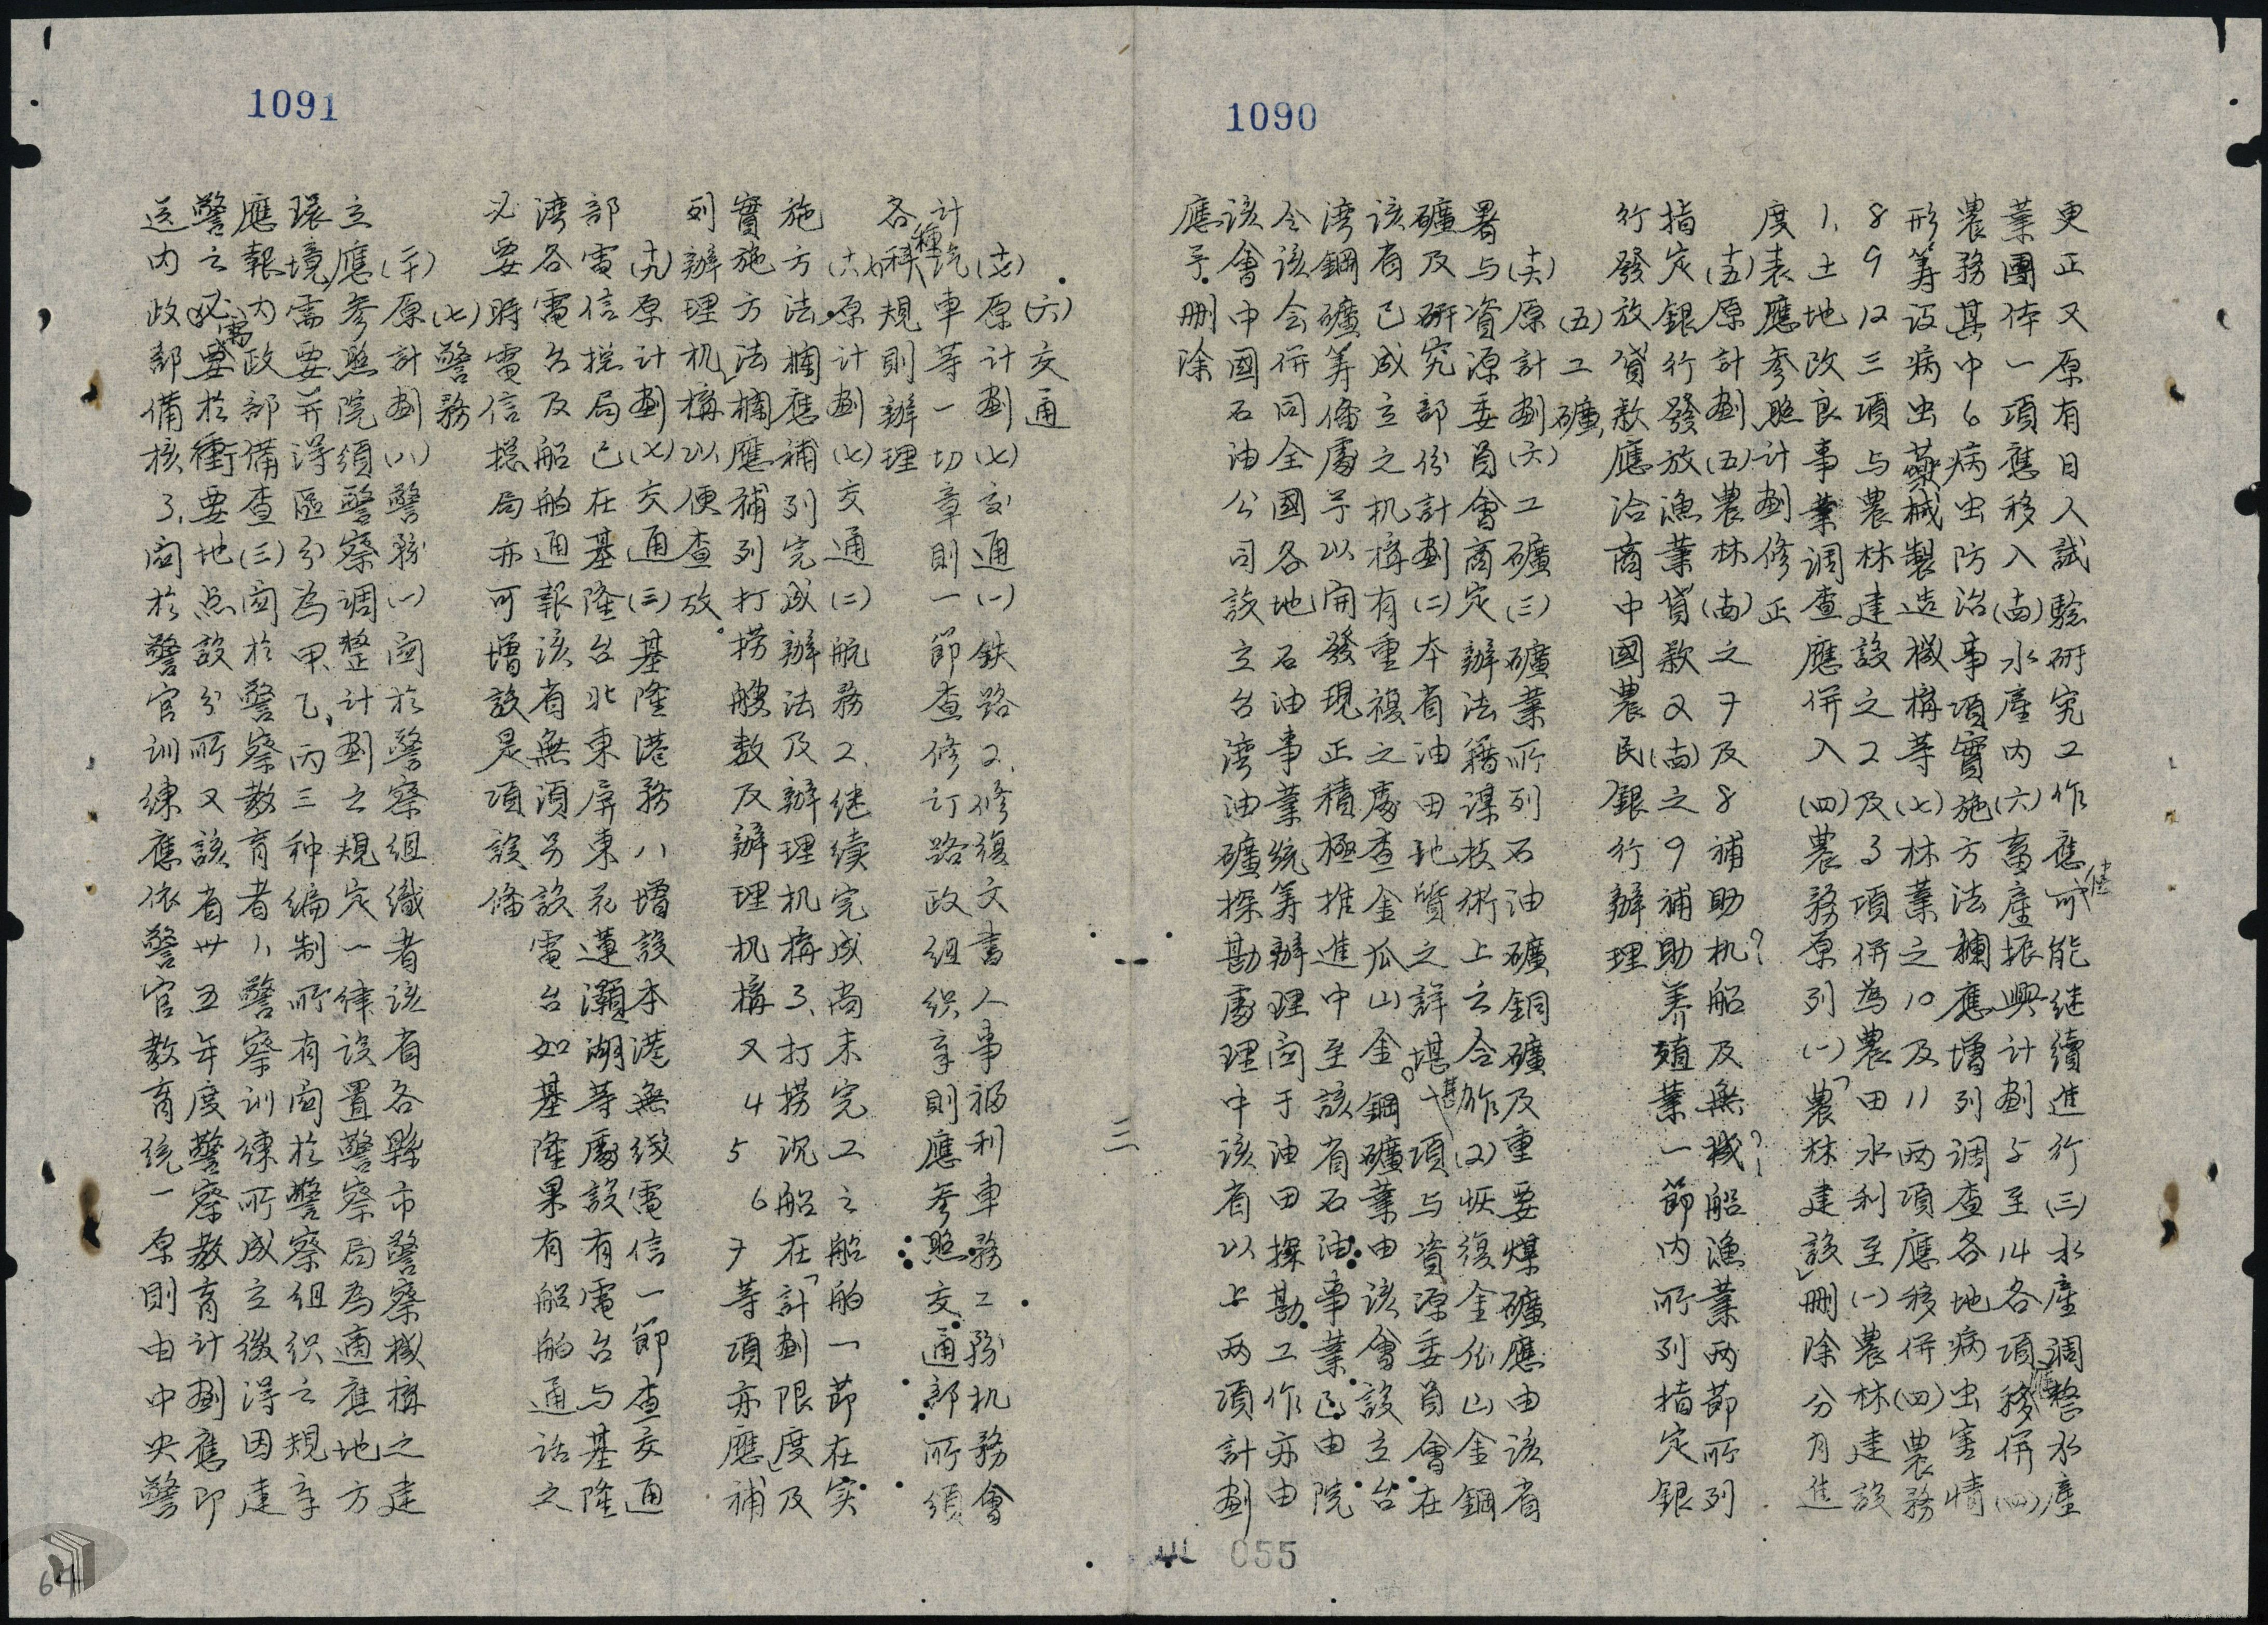 1090
更正又原有日人試驗研究工作應可使能继續進行(三)水產調整水產
業團体一項應移入(南)水產內(六)畜產振興計劃5至14各項應移併(四)
農務其中6病虫防治事項實施方法欄應增列調查各地病虫害情
形筹設病虫藥械製造機構等(七)林業之10及11兩項應移併(四)農務
8 9 12三項与農林建設之2及3項併為農田水利至(一)農林建設
1.土地改良事業調查應併入(四)農務原列(一)「農林建設」刪除分月進
度表應參照計劃修正
(五)原計劃(五)農林(南)之7及8補助机?船及無械?船漁業兩節所列
指定銀行發放漁業貸款又(南)之9補助养殖業一節內所列指定銀
行發放貸款應洽商中國農民銀行辦理
(五)工礦
(六)原計劃(六)工礦(三)礦業所列石油礦銅礦及重要煤礦應由該省
署与資源委員會商定辦法藉謀技術上之合作(2)恢復金瓜山金銅
礦及研究部份計劃(二)本省油田地質之詳堪一項与資源委員會在
該省已成立之机構有重複之處查金瓜山金銅礦業由該會設立台
湾銅礦筹備處予以開發現正積極推進中至該省石油事業已由院
令該会併同全國各地石油事業統筹辦理関于油田探勘工作亦由
該會中國石油公司設立台湾油礦探勘處理中該省以上兩項計劃
應予刪除
三
055
1091
(六)交通
(七)原計劃(七)交通(一)鉄路2.修復文書人事福利車務工務机務會
計汽車等一切章則一節查修订路政組织章則應參照交通部所頒
各種規則辦理
(六)原計劃(七)交通(二)航務2.继续完成尚未完工之船舶一節在实
施方法欄應補列完成辦法及辦理机構3.打撈沉船在「計劃限度及
實施方法」欄應補列打撈艘数及辦理机構又4 5 6 7等項亦應補
列辦理机構以便查放
(九)原計劃(七)交通(三)基隆港務八增設本港無缐電信一節查交通
部電信総局已在基隆台北東屏東花蓮灝湖等處設有電台与基隆
湾各電台及船舶通報該省無須另設電台如基隆果有船舶通话之
必要時電信総局亦可增設是項設備
(七)警務
(二十)原計劃(八)警務(一)関於警察組織者該省各縣市警察機構之建
立應參照院頒警察調整計劃之規定一律設置警察局為適應地方
環境需要并得區分為甲、乙、丙三种編制所有関於警察組织之規章
應報內政部備查(三)関於警察教育者八警察訓練所成立後得因建
警之必需於衝要地点設分所又該省卅五年度警察教育計劃應即
送內政部備核3.関於警官訓練應依警官教育統一原則由中央警
64